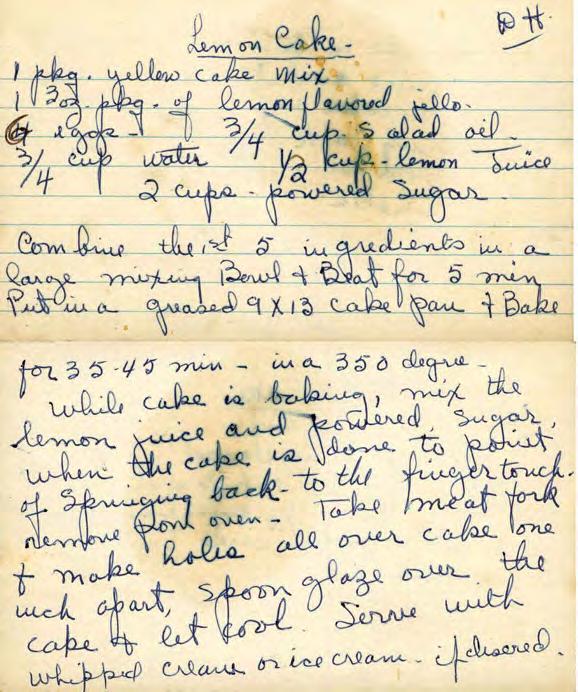 D H.
Lemon Cake.
1 pkg. yellow cake mix
1 3oz. pkg. of lemon flavored jello.
4 eggs - 3/4 cup salad oil.
3/4 cup water 1/2 cup - lemon Juice
2 cups - powered Sugar.
Combine the 1st 5 ingredients in a
large mixing Bowl + Beat for 5 min
Put in a greased 9 X 13 cake pan + Bake
for 35-45 min - in a 350 degree -
While cake is baking, mix the
lemon juice and powered sugar,
when the cake is done to point
of Springing back - to the finger touch.
remove from oven - Take meat fork
+ make holes all over cake one
inch apart, spoon glaze over the
cake + let cool. Serve with
whipped cream or ice cream - if disered.